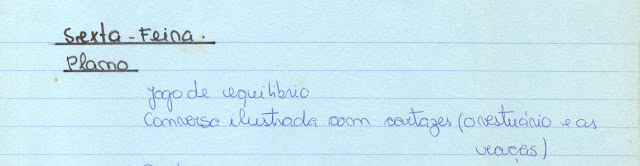 Sexta-Feira.
Plano
Jogo de equilíbrio
Conversa ilustrada com cartazes (o vestuário e as